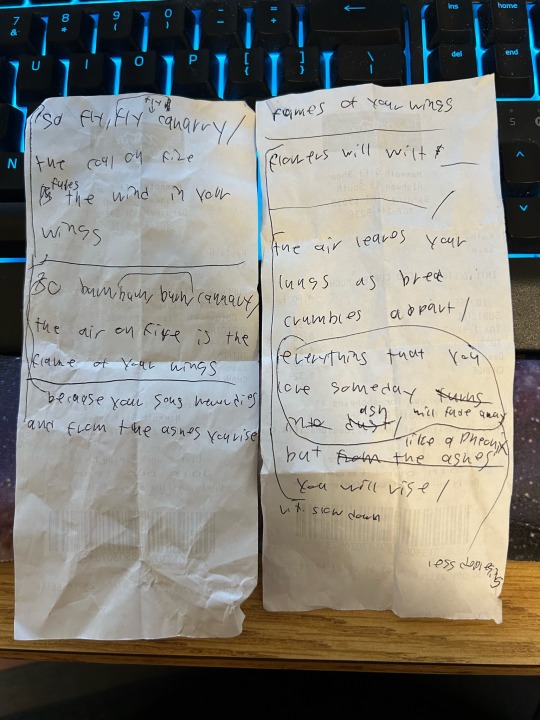 so fly, fly fly canarry/
the coal on fire
is fules the wind in your
wings
so burn burn burn cannary/
the air on fire is the
flame of your wings
because your song never dies
and from the ashes you rise
flames of your wings
flowers will wilt &
/
the air leaves your
lungs as
crumbles apart/
everything that you
love someday turns
into dust/ ash will fade away
but from the ashes like a Pheonix
you will rise/
slow down
less
7 8 9 0 - = ins home
& * ( ) _ + ←
U I O P [ ] \ del end
{ } |
N